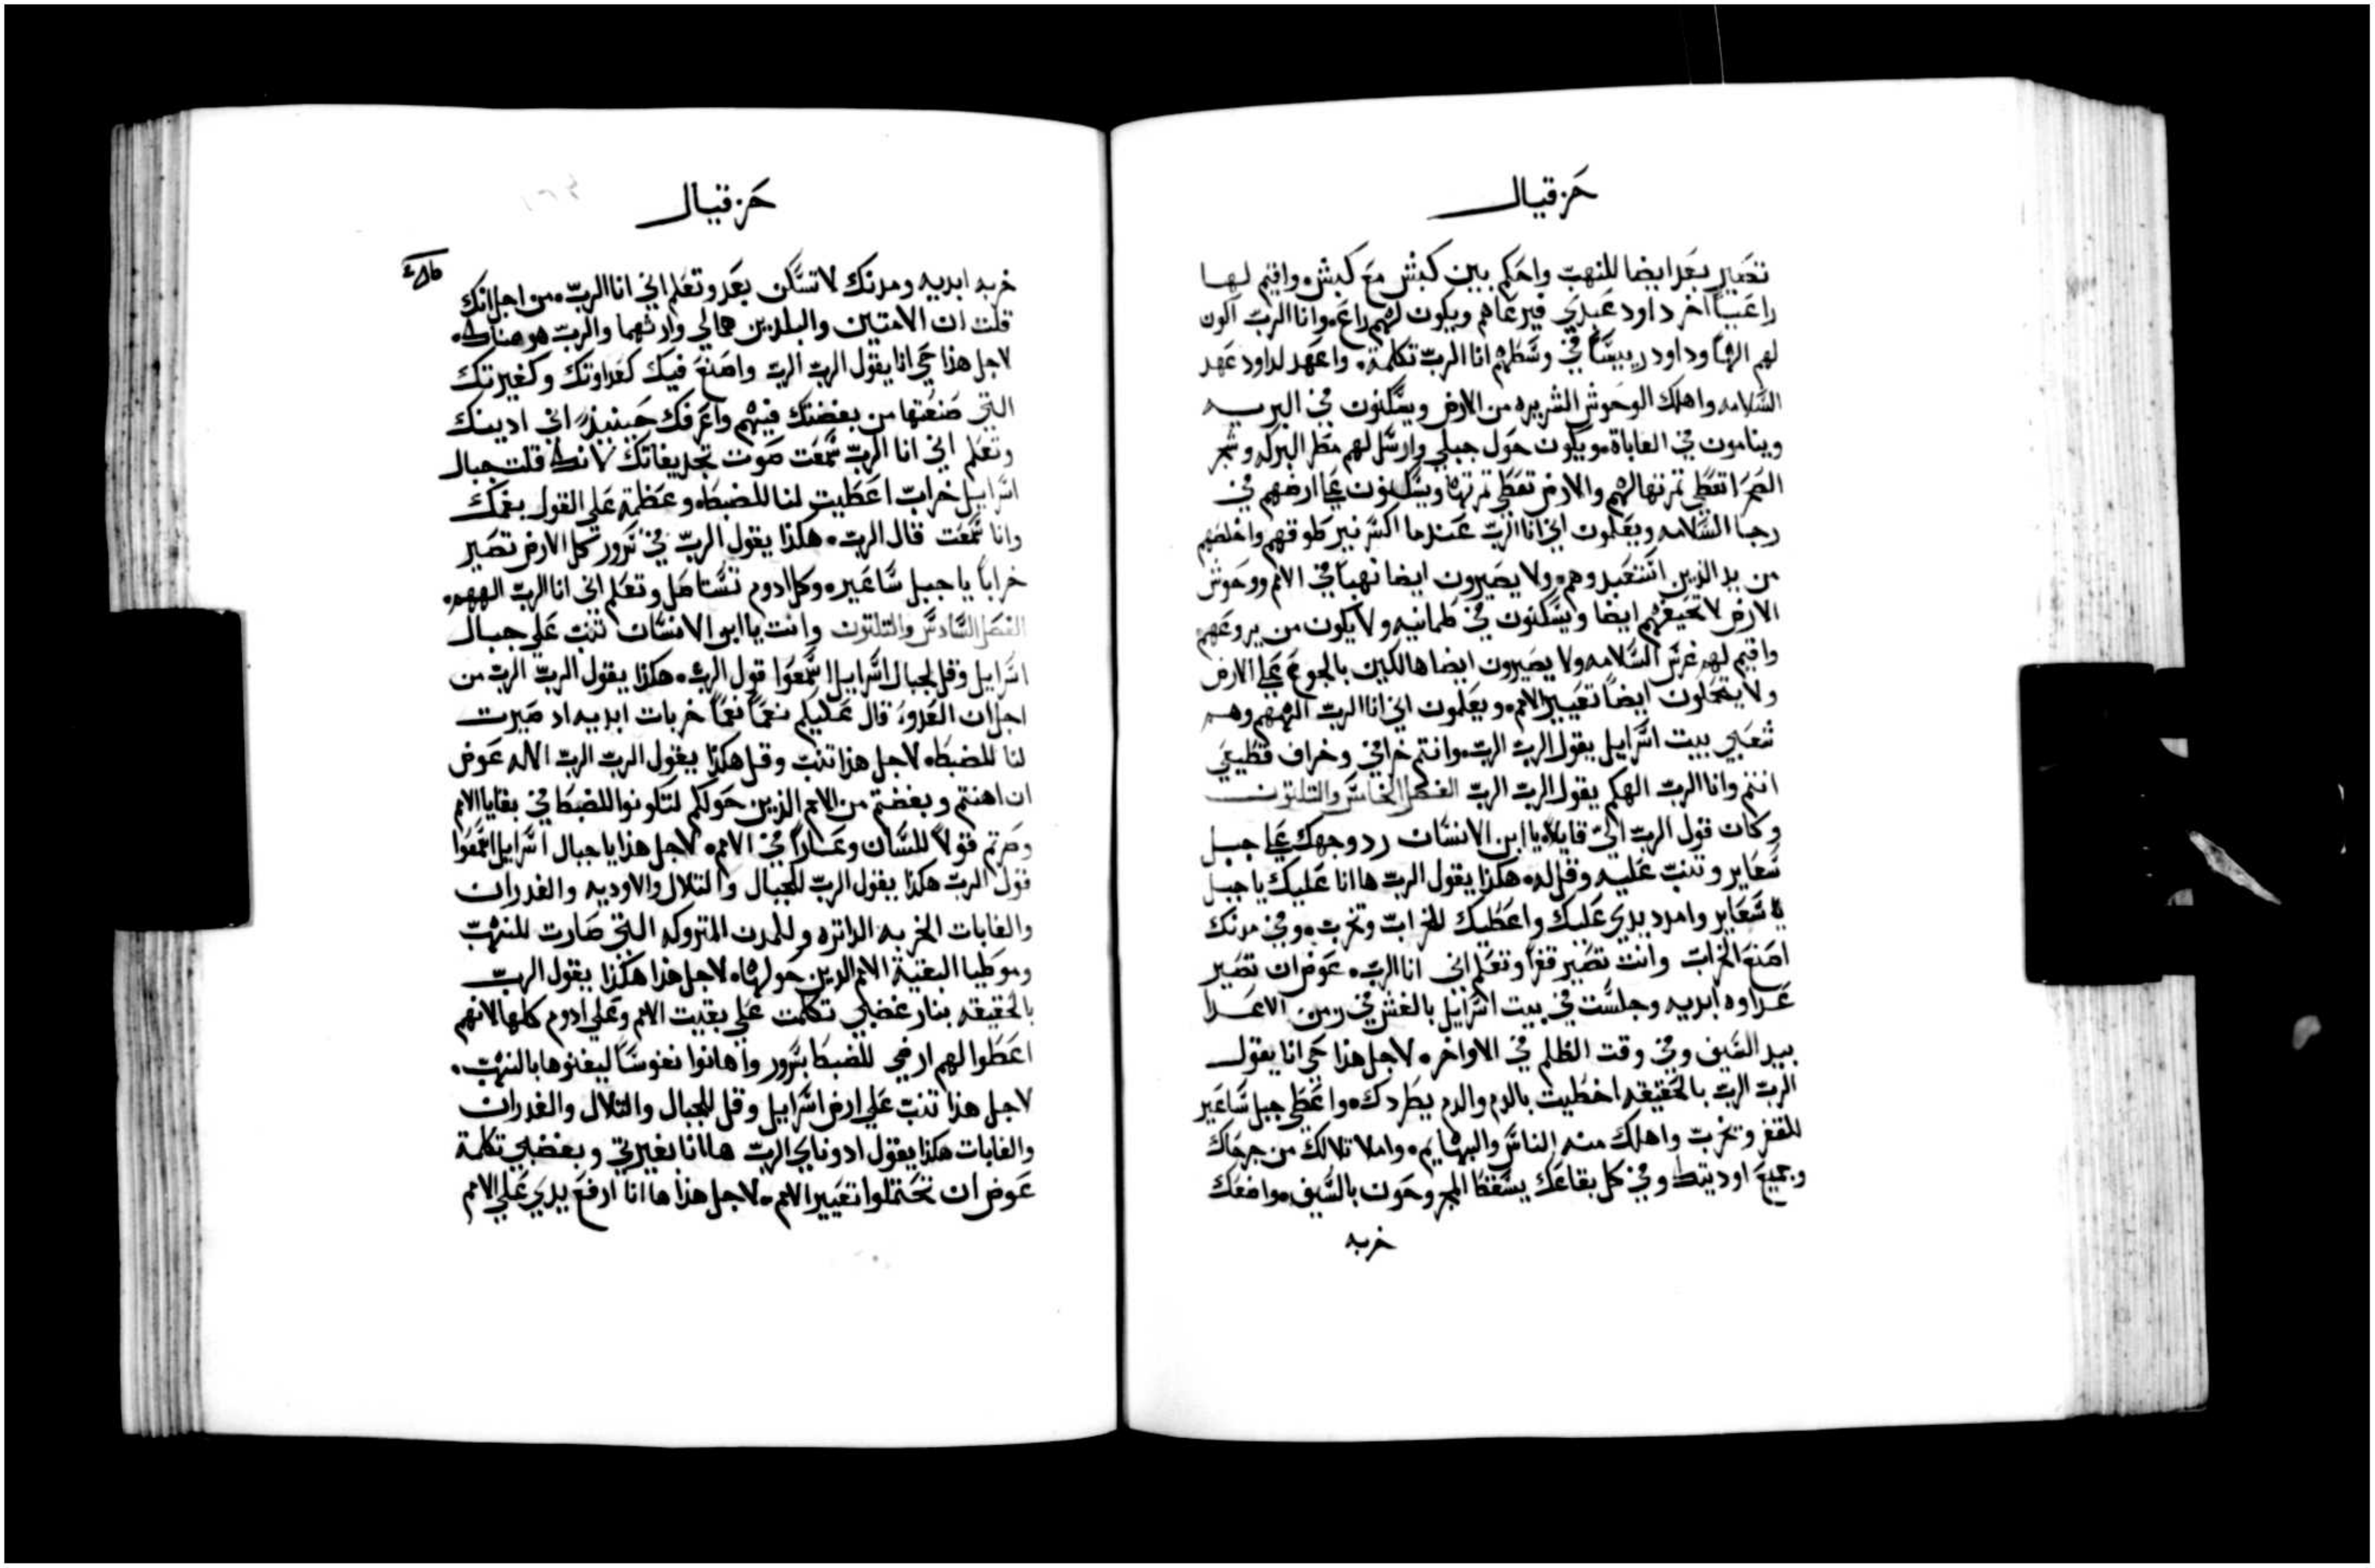 حزقيال
تصير بعد ايضا للنهب واحكم بين كبش مع كبش. واقيم لها
راعيا اخر داود عبدي فيرعاهم ويكون لهم راع. وانا الرب اكون
لهم الها وداود رييسا في وسطهم انا الرب تكلمة. واعهد لداود عهد
السلامه واهلك الوحوش الشريره من الارض ويسكنون في البريه
وينامون في الغاباة. ويكون حول جبلي وارسل لهم مطر البركه وشجر
الصحرا تعطي ثمرتها لهم والارض تعطي ثمرتها ويسكنون علي ارضهم في
رجا السلامه ويعلمون اني انا الرب عندما اكسر نير طوقهم واخلصهم
من يد الذين استعبدوهم. ولا يصيرون ايضا نهبا في الامم ووحوش
الارض لا تخيفهم ايضا ويسكنون في طمانيه ولا يكون من يروعهم
واقيم لهم غرس السلامه ولا يصيرون ايضا هالكين بالجوع علي الارض
ولا يتحملون ايضا تعيير الامم. ويعلمون اني انا الرب الههم وهم
شعبي بيت اسرايل يقول الرب الرب. وانتم خرافي وخراف قطيعي
انتم وانا الرب الهكم يقول الرب الرب الفصل الخامس والثلثون
وكان قول الرب الي قايلا. يا ابن الانسان رد وجهك علي جبل
سعاير وتنب عليه وقل له. هكذا يقول الرب ها انا عليك يا جبل
يا سعاير وامدد يدي عليك واعطيك للخراب وتخرب. وفي مدنك
اصنع الخراب وانت تصير قفرا وتعلم اني انا الرب. عوض ان تصير
عداوه ابديه وجلست في بيت اسرايل بالغش في زمن الاعدا
بيد السيف وفي وقت الظلم في الاواخر. لاجل هذا حي انا يقول
الرب الرب بالحقيقه اخطيت بالدم والدم يطردك. واعطي جبل ساعير
للقفر وتخرب واهلك منه الناس والبهايم. واملا تلالك من جرحاك
وجميع اوديتك وفي كل بقاعك يسقط المجروحون بالسيف. مواضعك
خربه
حزقيال
خربه ابديه ومدنك لا تسكن بعد وتعلم اني انا الرب. من اجل انك
قلت ان الامتين والبلدين هما لي وارثهما والرب هو هناك.
لاجل هذا حي انا يقول الرب الرب واصنع فيك كعداوتك وكغيرتك
التي صنعتها من بغضتك فيهم واعرفك حينيذ اني ادينك
وتعلم اني انا الرب سمعت صوت تجديفاتك لانك قلت جبال
اسرايل خراب اعطيت لنا للضبطه وعظمة علي القول بفمك
وانا سمعت قال الرب. هكذا يقول الرب في سرور كل الارض تصير
خرابا يا جبل ساعير. وكل ادوم تستاصل وتعلم اني انا الرب الههم.
الفصل السادس والثلثون وانت يا ابن الانسان تنب علي جبال
اسرايل وقل لجبال اسرايل اسمعوا قول الرب. هكذا يقول الرب الرب من
اجل ان العدو قال عليكم نعما نعما خربات ابديه اد صيرت
لنا للضبطه. لاجل هذا تنب وقل هكذا يقول الرب الرب الاله عوض
ان اهنتم وبغضتم من الامم الذين حولكم لتكونوا للضبط في بقايا الامم
وصرتم قولا للسان وعارا في الامم. لاجل هذا يا جبال اسرايل اسمعوا
قول الرب هكذا يقول الرب للجبال والتلال والاوديه والغدران
والغابات الخربه الداثره وللمدن المتروكه التي صارت للنهب
وموطيا البقية الامم الدين حولها. لاجل هذا هكذا يقول الرب
بالحقيقه بنار غضبي تكلمت علي بقيت الامم وعلي ادوم كلها لانهم
اعطوا لهم ارضي للضبط بسرور واهانوا نفوسا ليفنوها بالنهب.
لاجل هذا تنب علي ارض اسرايل وقل للجبال والتلال والغدران
والغابات هكذا يقول ادوناي الرب ها انا بغيرتي وبغضبي تكلمة
عوض ان تحتملوا تعيير الامم. لاجل هذا ها انا ارفع يدي علي الامم